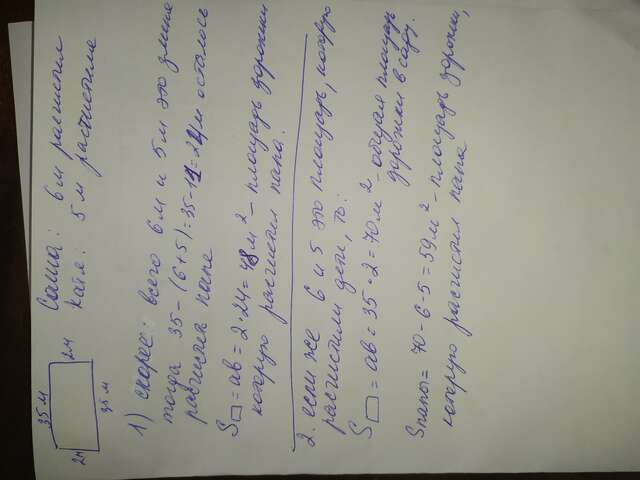 35 м
2м
2м
35 м
Саша: 6 м расчистил
Катя: 5 м расчистила
1) скорее: всего 6 м и 5 м это длина
тогда 35-(6+5)=35-11=24м осталось
расчистил папе
S□ = ab = 2·24=48 м² - площадь дорожки
которую расчистил папа.
2. если же 6 и 5 это площадь, которую
расчистили дети, то:
S□ = ab = 35·2=70м² - общая площадь
дорожки в саду.
Sпапы = 70-6-5=59м² - площадь дорожки,
которую расчистил папа